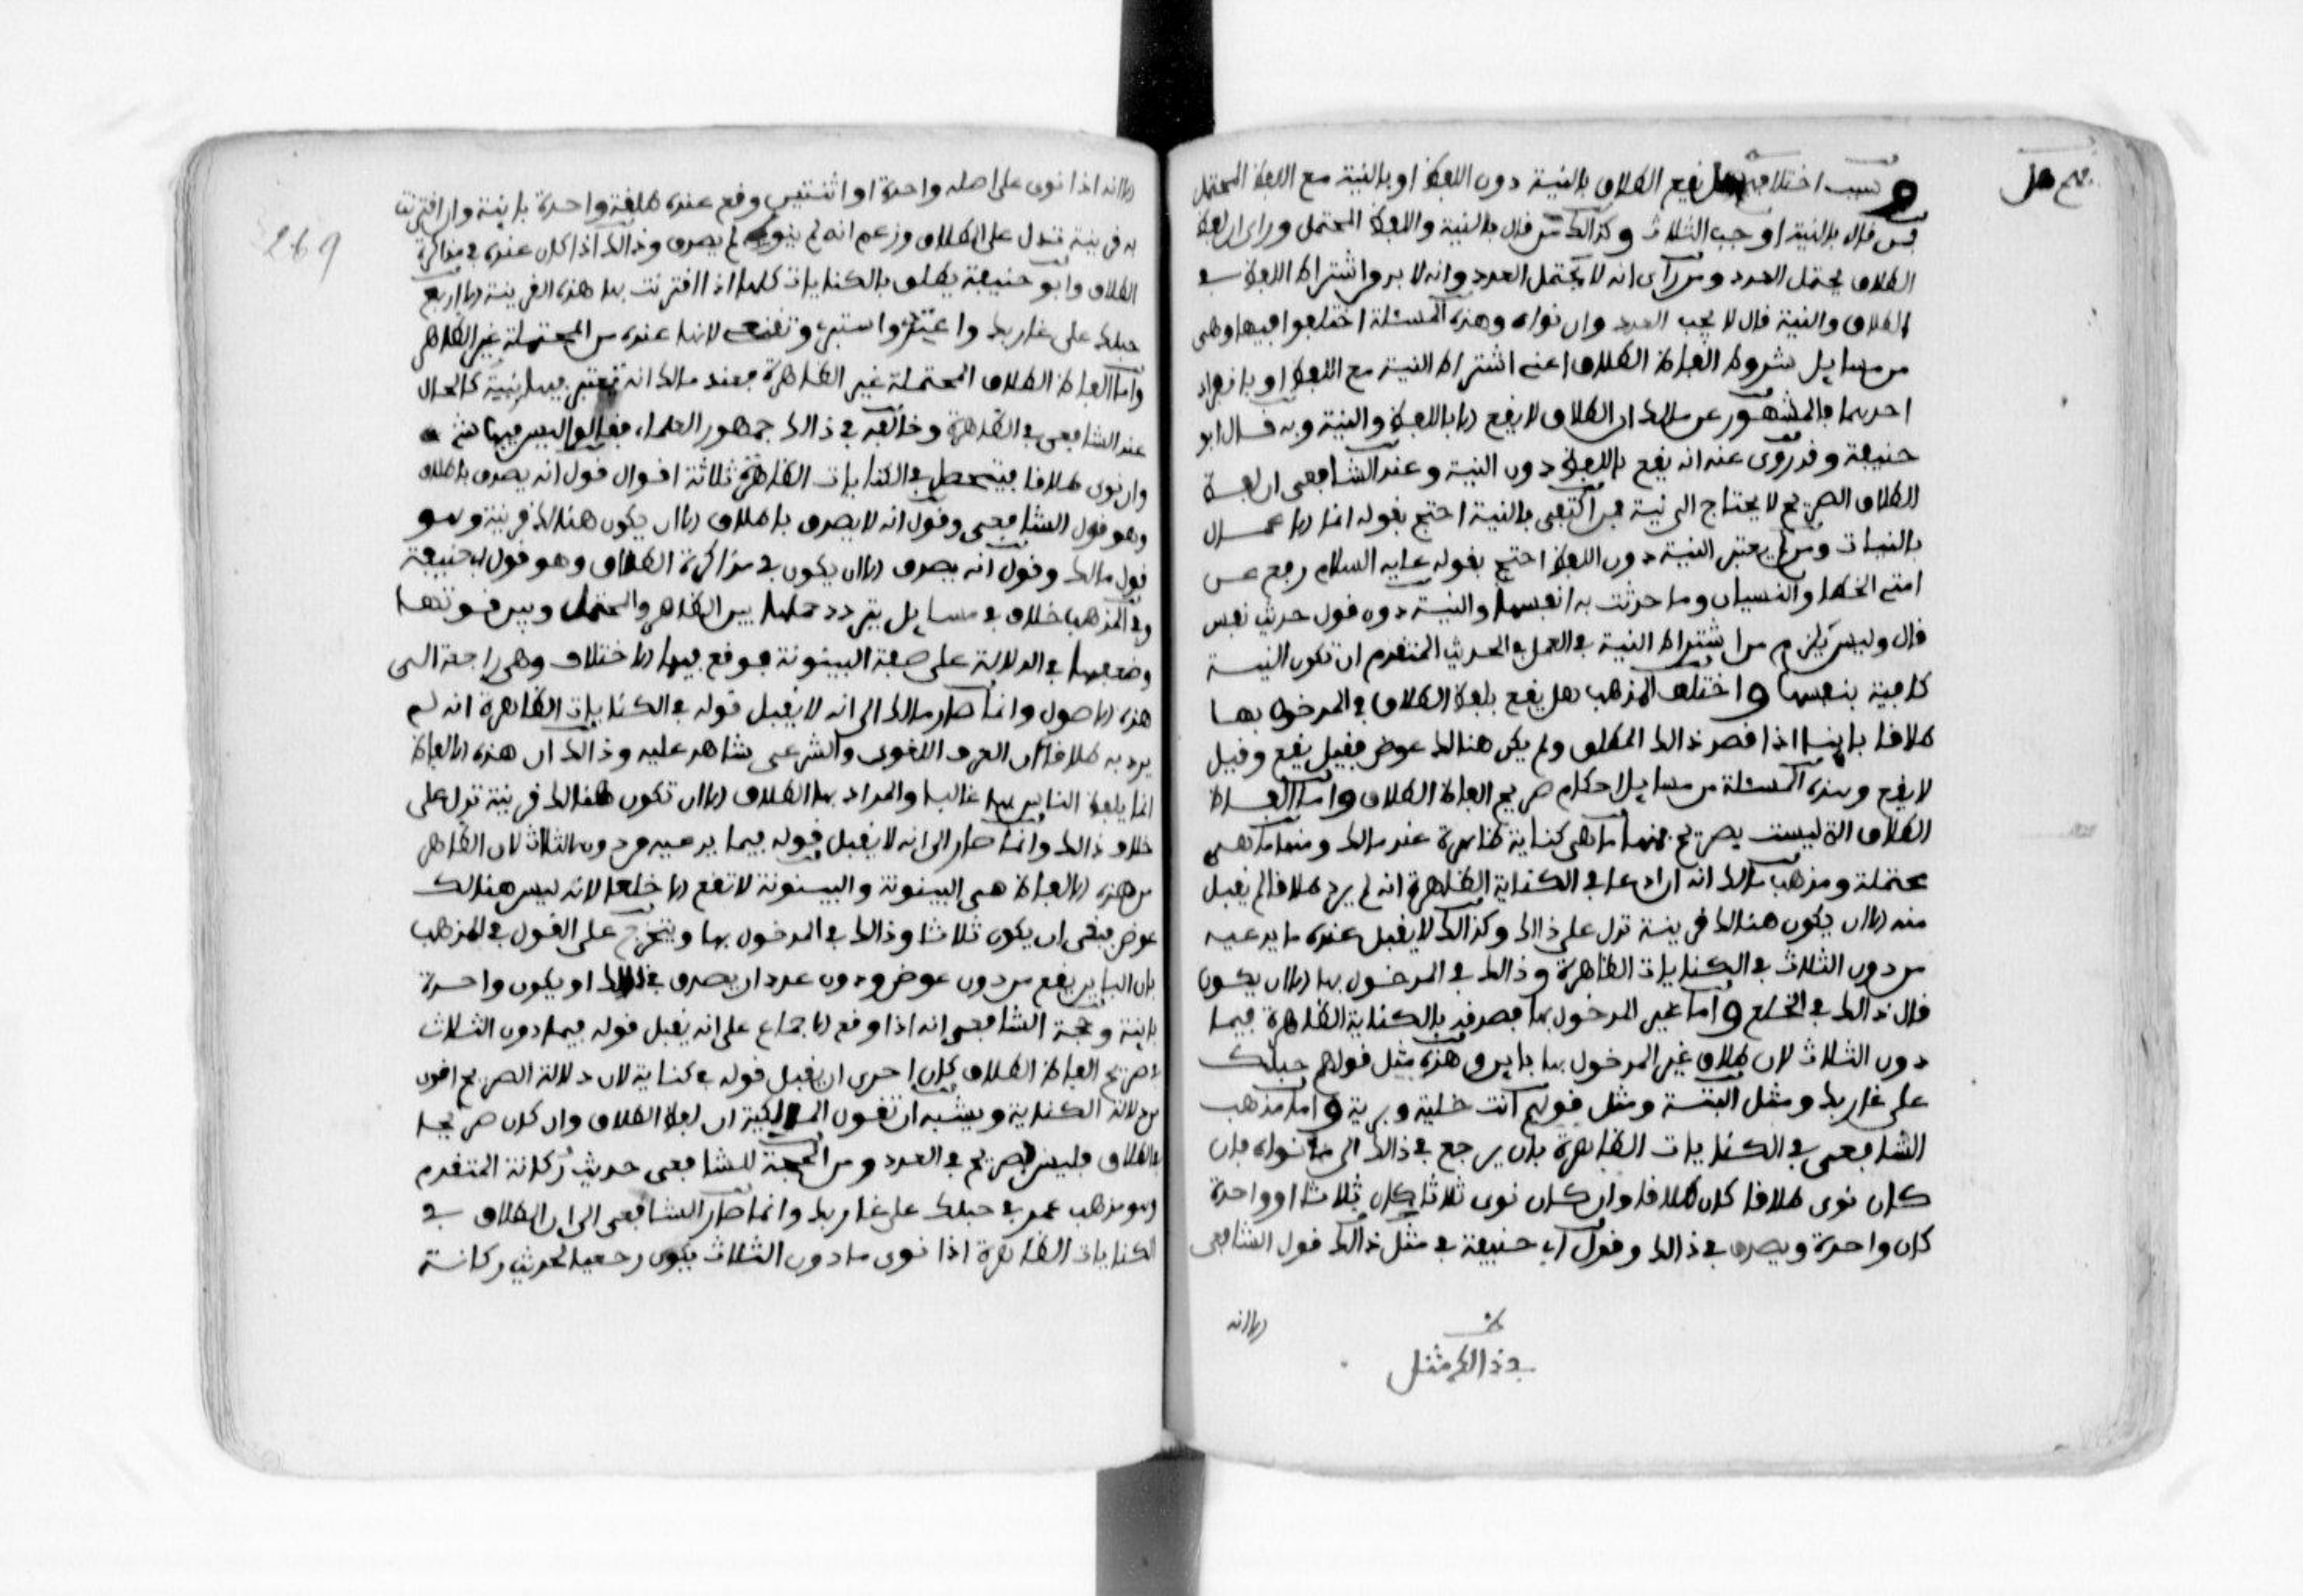 هم هل
وسبب اختلافهم هل يقع الطلاق بالنية دون اللفظ او بالنية مع اللفظ المحتمل
فمن قال بالنية اوجب الثلاث وكذالك من قال بالنية واللفظ المحتمل ورأى ان لفظ
الطلاق يحتمل العدد ومن رأى انه لا يحتمل العدد وانه لا بد من اشتراط اللفظ في
الطلاق والنية قال لا يجب العدد وان نواه وهذه المسئلة اختلفوا فيها وهي
من مسايل شروط الفاظ الطلاق اعني اشتراط النية مع اللفظ او بانفراد
احدهما فالمشهور عن مالك ان الطلاق لا يقع الا باللفظ والنية وبه قال ابو
حنيفة وقد روى عنه انه يقع باللفظ دون النية وعند الشافعي ان لفظ
الطلاق الصريح لا يحتاج الى نية فمن اكتفى بالنية احتج بقوله انما الاعمال
بالنيات ومن لم يعتبر النية دون اللفظ احتج بقوله عليه السلام رفع عن
امتي الخطا والنسيان وما حدثت به انفسها والنية دون قول حديث نفس
قال وليس يلزم من اشتراط النية في العمل في الحديث المتقدم ان تكون النية
كافية بنفسها واختلف المذهب هل يقع بلفظ الطلاق في المدخول بها
طلاقا باينا اذا قصد ذالك المطلق ولم يكن هنالك عوض فقيل يقع وقيل
لا يقع وهذه المسئلة من مسايل احكام صريح الفاظ الطلاق واما الفاظ
الطلاق التي ليست بصريح فمنها ما هي كناية ظاهرة عند مالك ومنها ما هي
محتملة ومذهب مالك انه اذا ادعا في الكناية الظاهرة انه لم يرد طلاقا لم يقبل
منه الا ان يكون هنالك قرينة تدل على ذالك وكذالك لا يقبل عنده ما يدعيه
من دون الثلاث في الكنايات الظاهرة وذالك في المدخول بها الا ان يكون
قال ذالك في الخلع واما غير المدخول بها فيصدقه بالكناية الظاهرة فيما
دون الثلاث لان طلاق غير المدخول بها باين وهذه مثل قولهم حبلك
على غاربك ومثل البتة ومثل قولهم انت خلية وبرية واما مذهب
الشافعي في الكنايات الظاهرة بان يرجع في ذالك الى ما نواه فان
كان نوى طلاقا كان طلاقا وان كان نوى ثلاثا كان ثلاثا او واحدة
كان واحدة ويصدق في ذالك وقول ابي حنيفة في مثل ذالك قول الشافعي
الا انه
في ذالك مثل
269
الا انه اذا نوى على اصله واحدة او اثنتين وقع عنده طلقة واحدة باينة وان اقترنت
به قرينة تدل على الطلاق وزعم انه لم ينوه لم يصدق وذالك اذا كان عنده في مذاكرة
الطلاق وابو حنيفة يطلق بالكنايات كلها اذا اقترنت بها هذه القرينة الا اربع
حبلك على غاربك واعتدي واستبري وتقنعي لانها عنده من المحتملة غير الظاهر
واما الفاظ الطلاق المحتملة غير الظاهرة فعند مالك انه تعتبر فيها نيته كالحال
عند الشافعي في الظاهرة وخالفه في ذالك جمهور العلماء فقالوا ليس فيها شيء
وان نوى طلاقا فيتحصل في الكنايات الظاهرة ثلاثة اقوال قول انه يصدق باطلاق
وهو قول الشافعي وقول انه لا يصدق باطلاق الا ان يكون هنالك قرينة وهو
قول مالك وقول انه يصدق الا ان يكون في مذاكرة الطلاق وهو قول ابي حنيفة
وفي المذهب خلاف في مسايل يتردد حملها بين الظاهر والمحتمل وبين قوتها
وضعفها في الدلالة على صفة البينونة فوقع فيها الاختلاف وهي راجعة الى
هذه الاصول وانما صار مالك الى انه لا يقبل قوله في الكنايات الظاهرة انه لم
يرد به طلاقا لان العرف اللغوي والشرعي شاهد عليه وذالك ان هذه الالفاظ
انما يلفظ الناس بها غالبا والمراد بها الطلاق الا ان تكون هنالك قرينة تدل على
خلاف ذالك وانما صار الى انه لا يقبل قوله فيما يدعيه من دون الثلاث لان الظاهر
من هذه الالفاظ هي البينونة والبينونة لا تقع الا خلعا لانه ليس هنالك
عوض فبقي ان يكون ثلاثا وذالك في المدخول بها ويتخرج على القول في المذهب
بان الباين يقع من دون عوض ودون عدد ان يصدق في ذالك او يكون واحدة
باينة وحجة الشافعي انه اذا وقع الاجماع على انه يقبل قوله فيما دون الثلاث
في صريح الفاظ الطلاق كان احرى ان يقبل قوله في كناية لان دلالة الصريح اقوى
من دلالة الكناية ويشبه ان تقول المالكية ان لفظ الطلاق وان كان صريحا
في الطلاق فليس بصريح في العدد ومن الحجة للشافعي حديث ركانة المتقدم
وهو مذهب عمر في حبلك على غاربك وانما صار الشافعي الى ان الطلاق في
الكنايات الظاهرة اذا نوى ما دون الثلاث يكون رجعيا لحديث ركانة